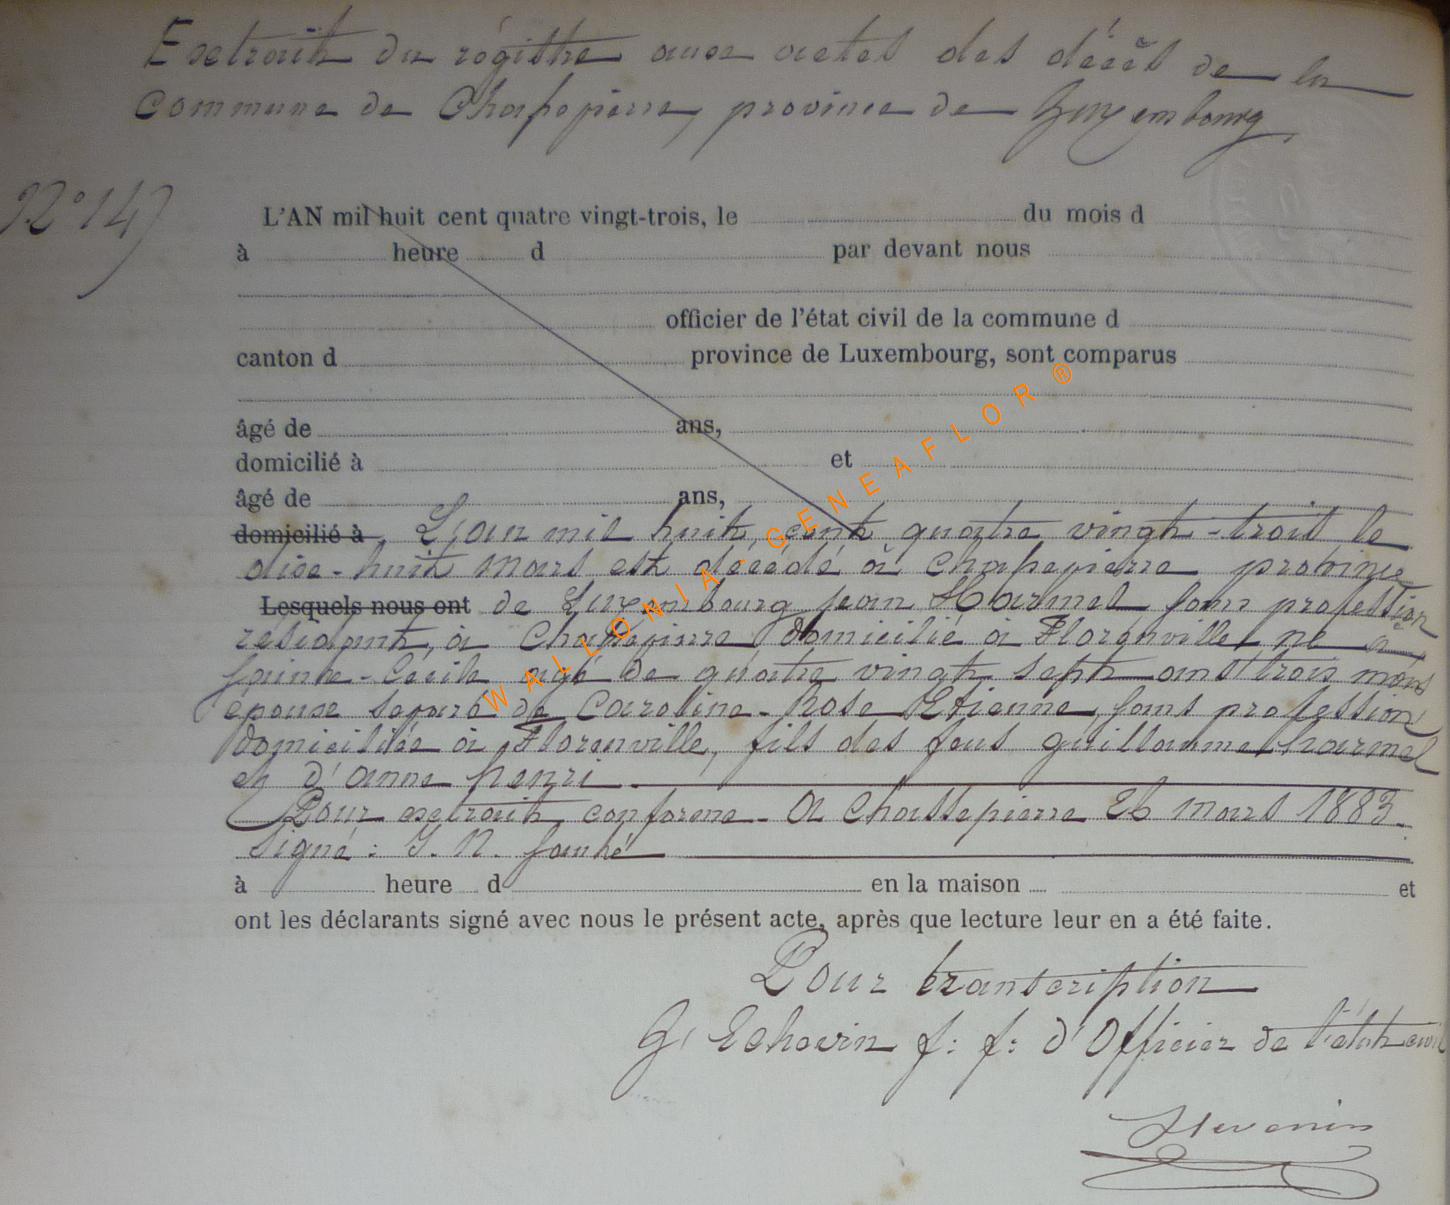 Extrait du régistre aux actes des décès de la
Commune de Chassepierre, province de Luxembourg,
N° 14
L'AN mil huit cent quatre vingt-trois, le du mois d
à heure d par devant nous
officier de l'état civil de la commune d
canton d province de Luxembourg, sont comparus
âgé de ans,
domicilié à et
âgé de ans,
domicilié à L'an mil huit cent quatre vingt-trois le
dix-huit Mars est décédé à Chassepierre province
Lesquels nous ont de Luxembourg Jean Harmel sans profession
résidant à Chassepierre domicilié à Florenville, né à
Sainte-Cécile agé de quatre vingt sept ans trois mois
épouse séparé de Caroline-Rose Etienne, sans profession
domiciliée à Florenville, fils des feus guillaume harmel
et d'anne henri.
Pour extrait conforme. A Chassepierre 26 Mars 1883.
Signé: J. N.
à heure d en la maison et
ont les déclarants signé avec nous le présent acte, après que lecture leur en a été faite.
Pour transcription
L'Echevin f: f: d'Officier de l'état civil
WALLONIA-GENEAFLOR®